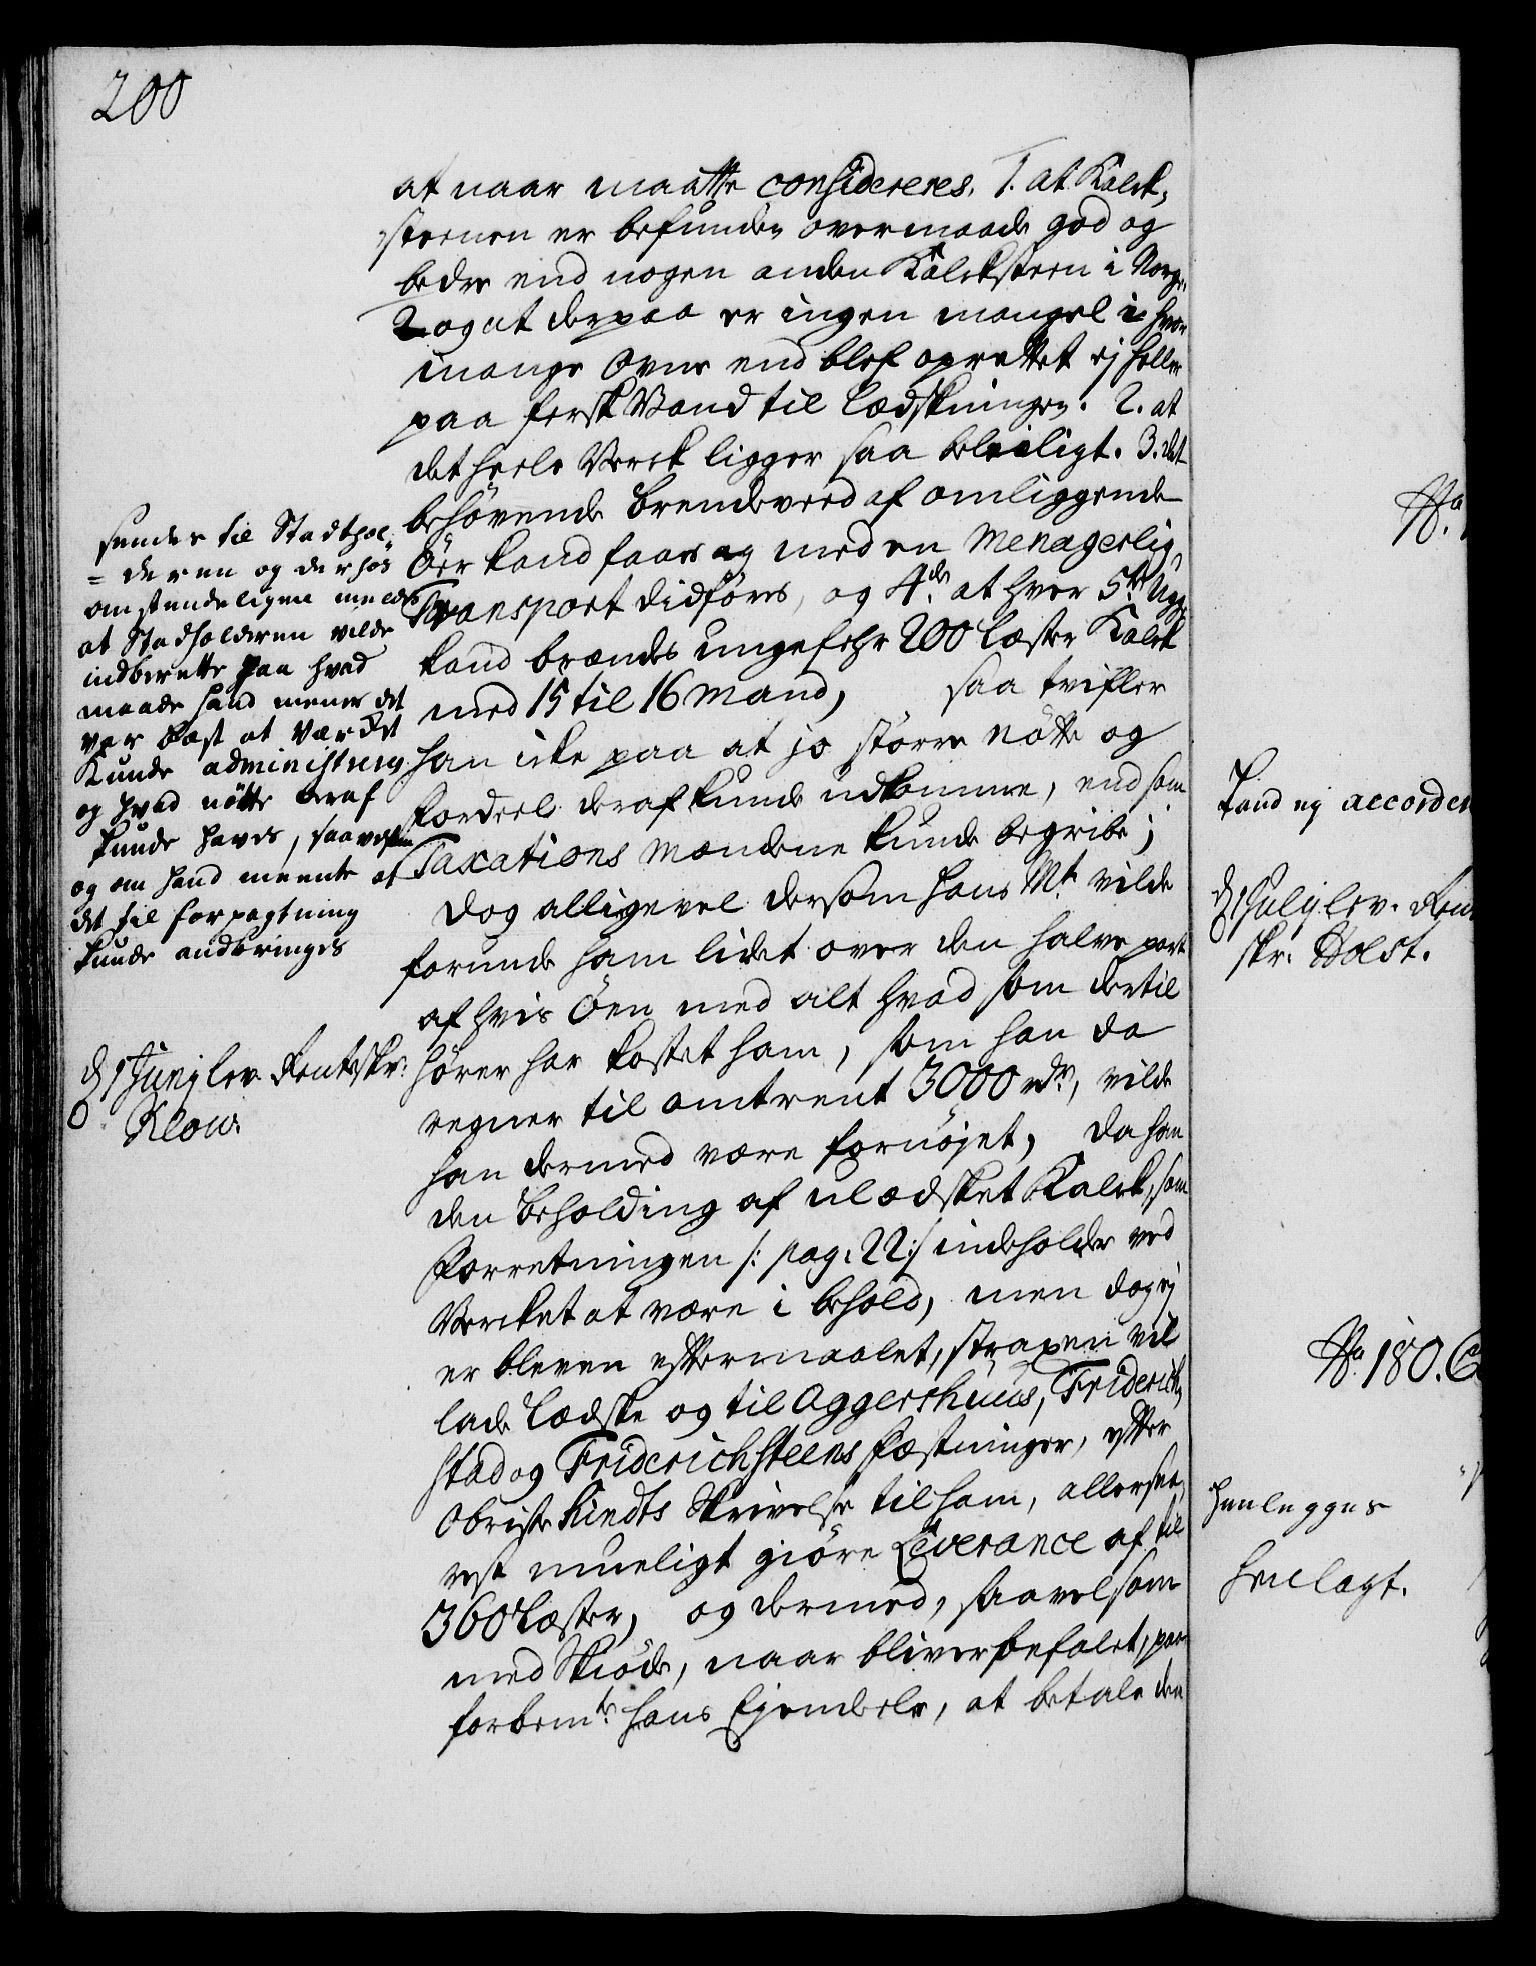 200
at naar maatte considereres. 1. at Kalck,
steenen er befunden overmaade god og
bedre end nogen anden Kalcksteen i Norge,
2 og at derpaa er ingen mangel i hvor
mange Ovne end blef oprettet ej heller
paa fersk Vand til Lædskningen. 2. at
det heele Verck ligger saa beleiligt. 3. det
behövende brendeveed af omliggende
Öer kand faaes og med en menagerlig
Transport didföres, og 4de at hver 5te Uge
kand brændes ungefehr 200 Læster Kalck
med 15 til 16 mand, saa tvifler
han icke paa at jo större nötte og
fordeel deraf kunde udkomme, end som
Taxations mændene kunde begribe;
Dog alligevel dersom hans Mt. vilde
forunde ham lidet over den halve part
af hvis Öen med alt hvad som dertil
hörer har kostet ham, som han da
regner til omtrent 3000 rdr, vilde
han dermed være fornöjet, da han
den beholding af ulædsket Kalck, som
Forretningen /: pag: 22 :/ indeholder ved
Vercket at være i behold, men dog ej
er bleven eftermaalet, straxen vil
lade Lædske og til Aggershuus, Friderich,
stad og Friderichsteens Fæstninger, efter
Obriste Kindts Skrivelse til ham, allerset,
rest mueligt giöre Leverance af til
360 Læster, og dermed, saavelsom
med Skiöde, naar bliver befalet, paa
forbemte. hans Ejendeele, at betale den
sendes til Stadthol,
=deren og derhos
omstendeligen meldes
at Stadholderen vilde
indberette paa hvad
maade hand mener det
var best at Værket
Kunde administreres
og hvad nötte deraf
kunde haves, saavelsom
og om hand meente at
det til forpagtning
kunde andbringes
d 1 Junj lev. Rentskr:
Klow.
No.
kand ej accorder
d 1 Julij lev. Ren
skr. Holst.
No. 180. C
henlegges
henlagt.